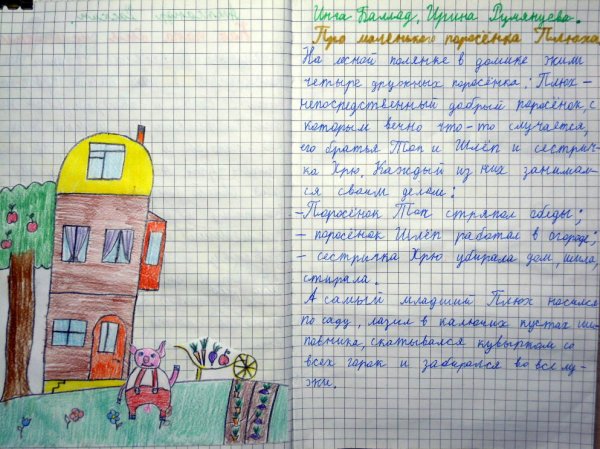 Инга Баллод, Ирина Румянцева.
Про маленького поросёнка Плюха.
На лесной полянке в домике жили
четыре дружных поросёнка: Плюх –
непосредственный добрый поросёнок, с
которым вечно что-то случается,
его братья Топ и Шлёп и сестрич-
ка Хрю. Каждый из них занимал-
ся своим делом:
– Поросёнок Топ стряпал обеды;
– поросёнок Шлёп работал в огороде;
– сестричка Хрю убирала дом, шила,
стирала.
А самый младший Плюх носился
по саду, лазил в колючих кустах ши-
повника, скатывался кувырком со
всех горок и забирался во все лу-
жи.